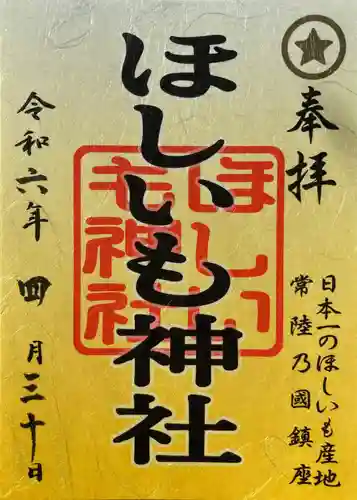 奉拝
日本一のほしいも産地
常陸乃國鎮座
ほしいも神社
ほしいも神社
令和六年 四月三十日